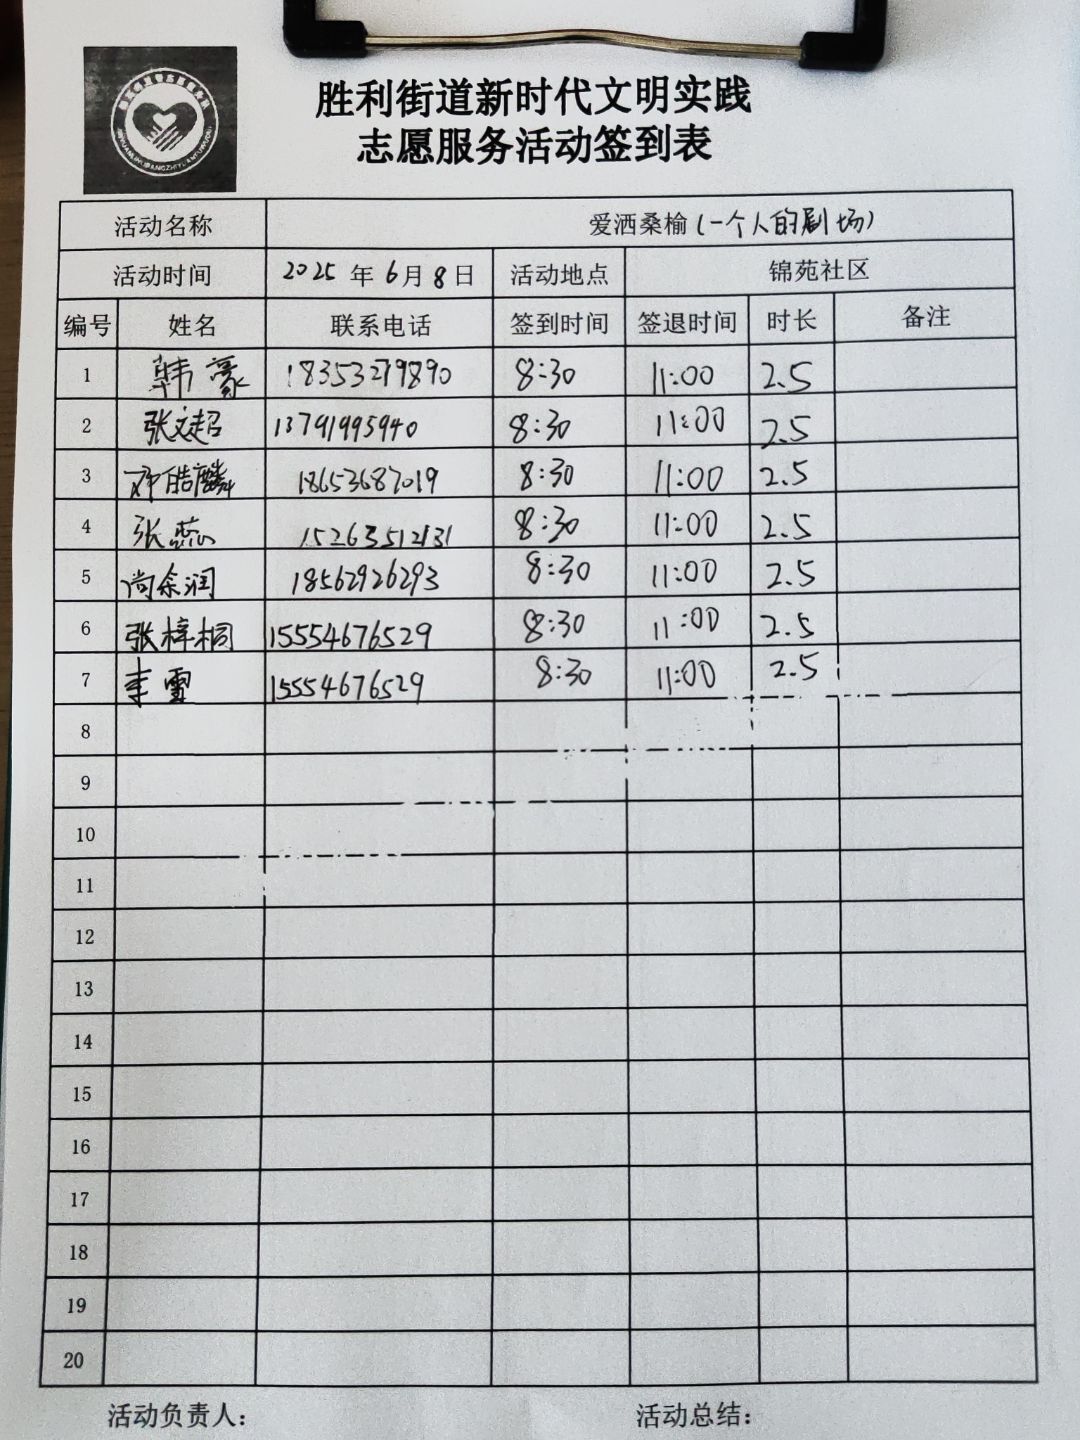 胜利街道新时代文明实践
志愿服务活动签到表
活动名称 爱洒桑榆(一个人的剧场)
活动时间 2025年6月8日 活动地点 锦苑社区
编号 姓名 联系电话 签到时间 签退时间 时长 备注
1 韩豪 18353279890 8:30 11:00 2.5
2 张文超 13791995940 8:30 11:00 2.5
3 邓皓麟 18653687019 8:30 11:00 2.5
4 张蕊 15263512131 8:30 11:00 2.5
5 尚余润 18562926293 8:30 11:00 2.5
6 张梓桐 15554676529 8:30 11:00 2.5
7 李雪 15554676529 8:30 11:00 2.5
8
9
10
11
12
13
14
15
16
17
18
19
20
活动负责人: 活动总结: